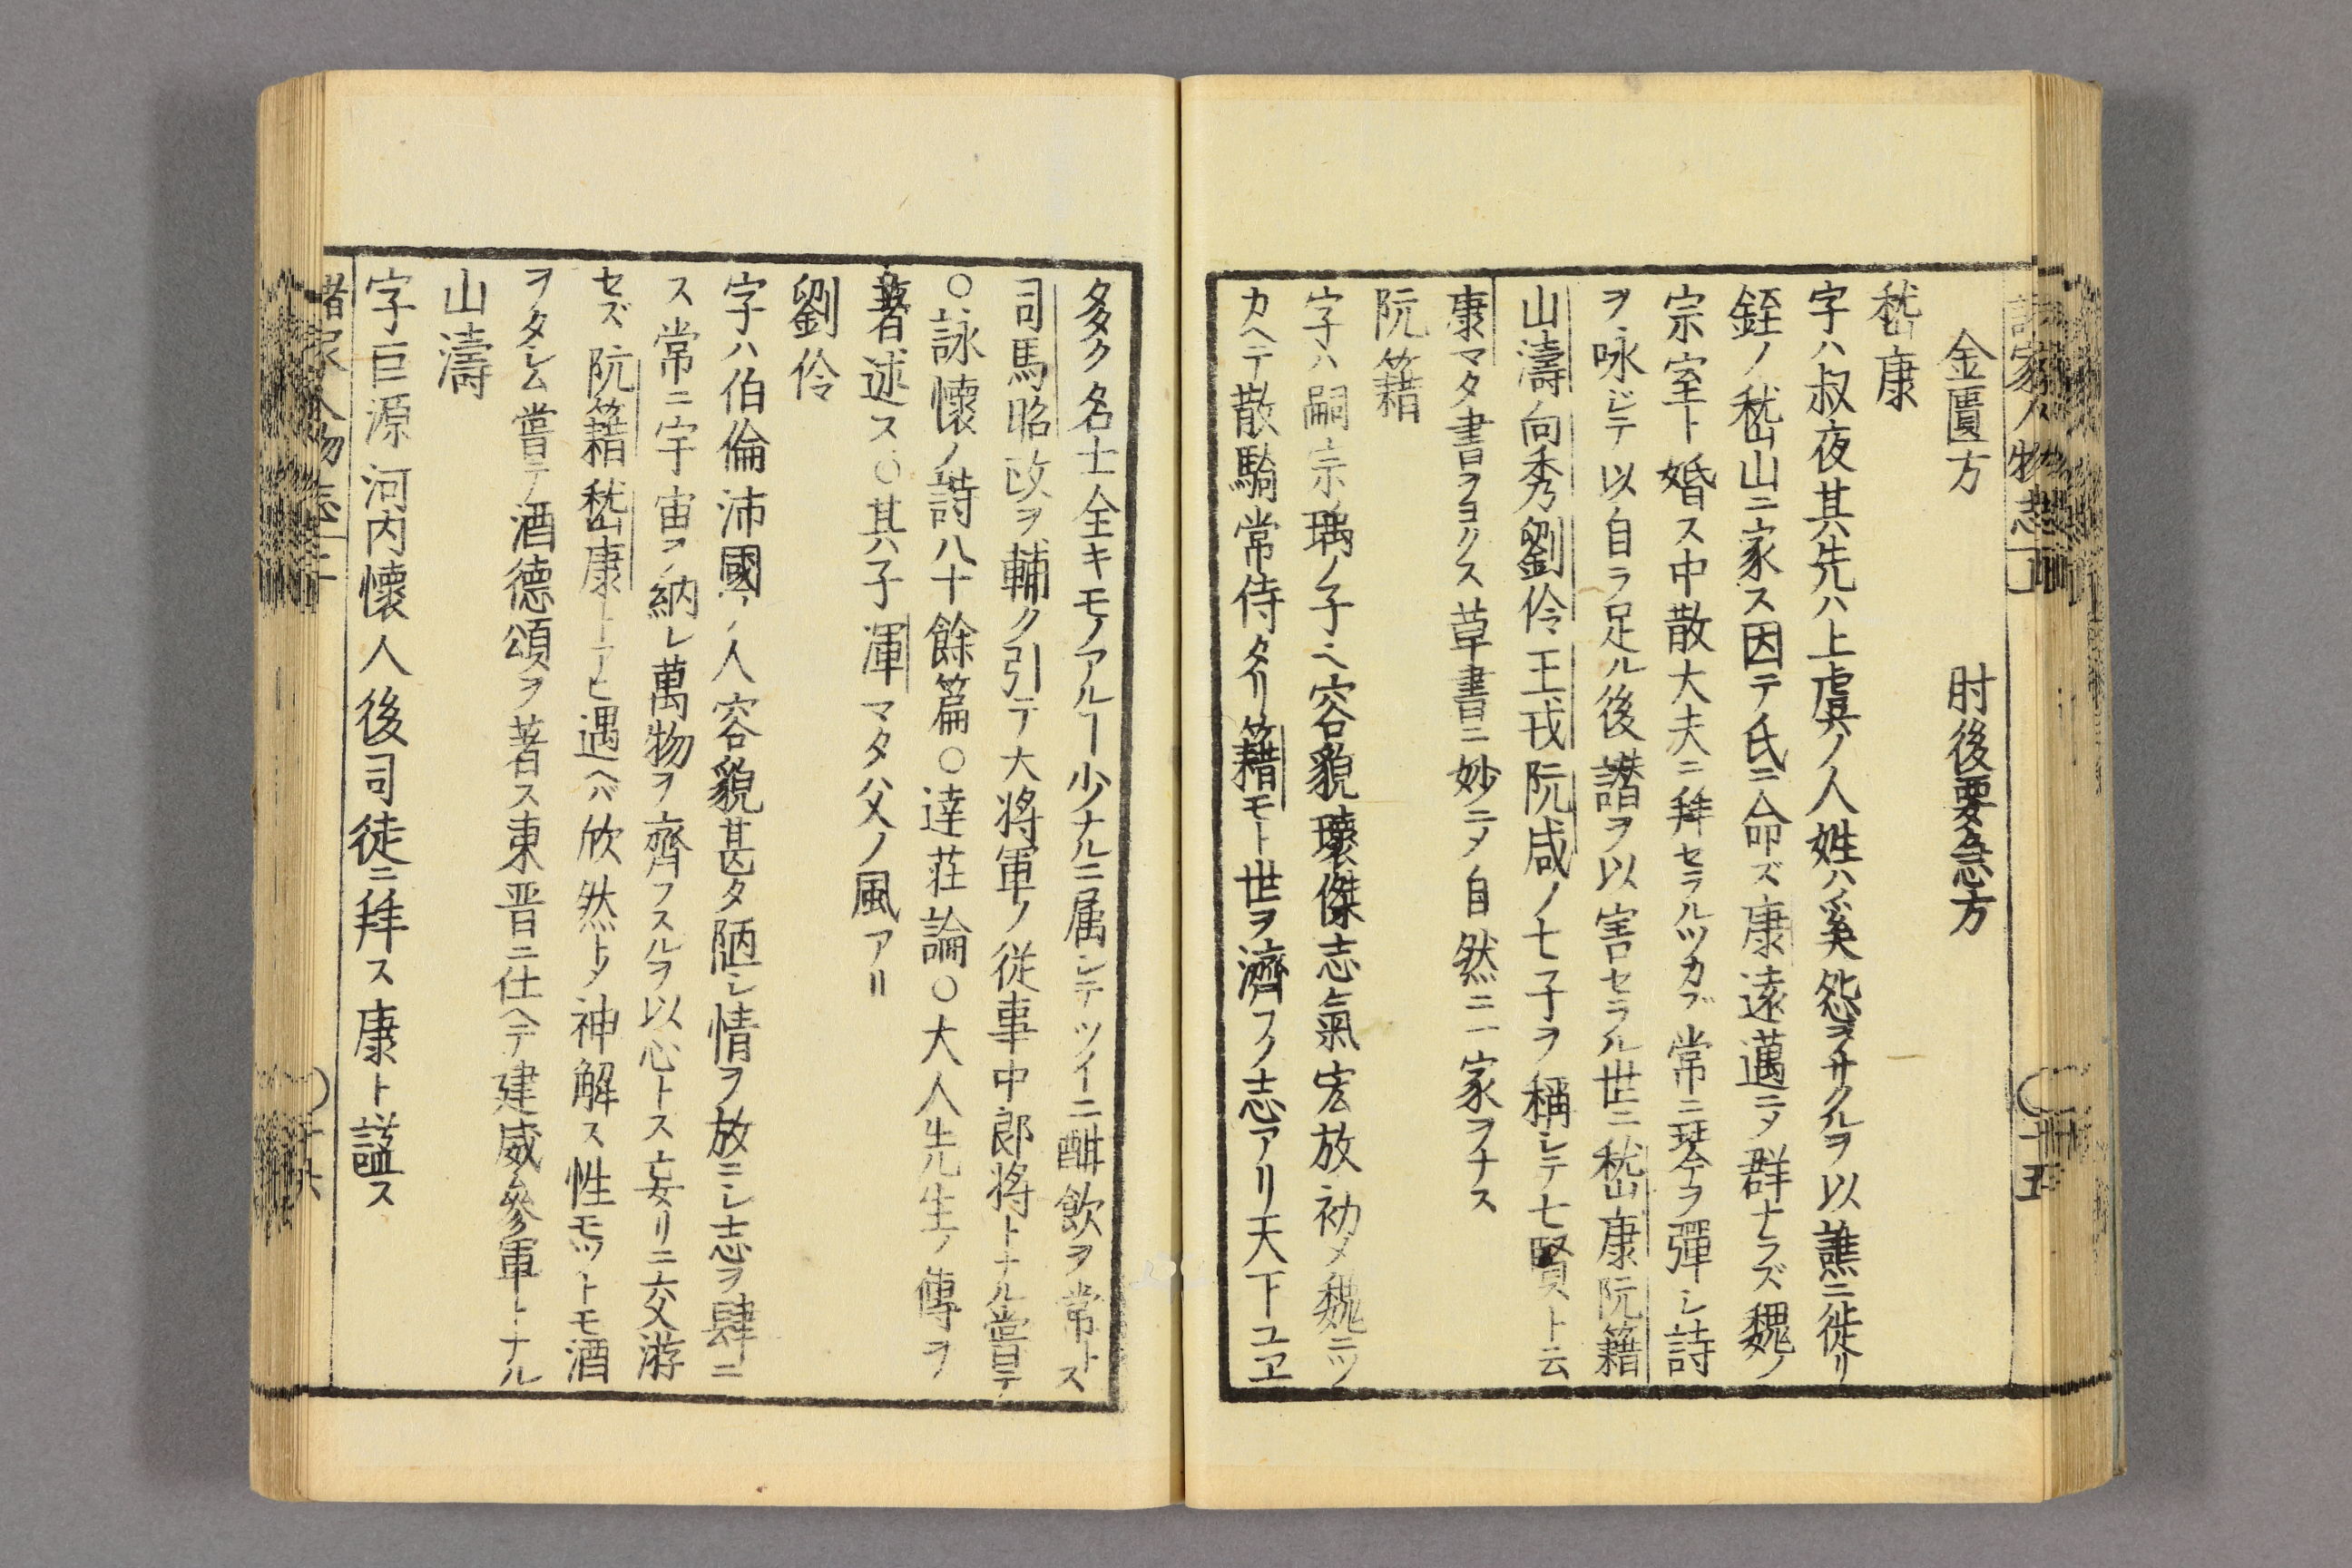 金匱方 肘後要急方
嵇康
字ハ叔夜其先ハ上虞ノ人姓ハ奚怨ヲサクルヲ以譙ニ徙リ
銍ノ嵇山ニ家ス因テ氏ニ命ズ康遠邁ニメ群ナラズ魏ノ
宗室ト婚ス中散大夫ニ拜セラルツカブ常ニ琴ヲ彈シ詩
ヲ咏ジテ以自ラ足ル後譖ヲ以害セラル世ニ嵇康阮籍
山濤向秀劉伶王戎阮咸ノ七子ヲ稱シテ七賢ト云
康マタ書ヲヨクス草書ニ妙ニメ自然ニ一家ヲナス
阮籍
字ハ嗣宗瑀ノ子ベ容貌瓌傑志氣宏放初メ魏ニツ
カヘテ散騎常侍タリ籍モト世ヲ濟フノ志アリ天下ユヱ
多ク名士全キモノアルヿ少ナルニ属シテツイニ酣飲ヲ常トス
司馬昭政ヲ輔ク引テ大将軍ノ従事中郎将トナル嘗テ
○詠懷ノ詩八十餘篇○達荘論○大人先生ノ傳ヲ
著述ス○其子渾マタ父ノ風アリ
劉伶
字ハ伯倫沛國ノ人容貌甚タ陋シ情ヲ放ニシ志ヲ肆ニ
ス常ニ宇宙ヲ納レ萬物ヲ齊フスルヲ以心トス妄リニ交游
セズ阮籍嵇康トアヒ遇ヘバ欣然トメ神解ス性モツトモ酒
ヲタシム嘗テ酒德頌ヲ著ス東晋ニ仕ヘテ建威參軍トナル
山濤
字巨源河内懷人後司徒ニ拜ス康ト諡ス